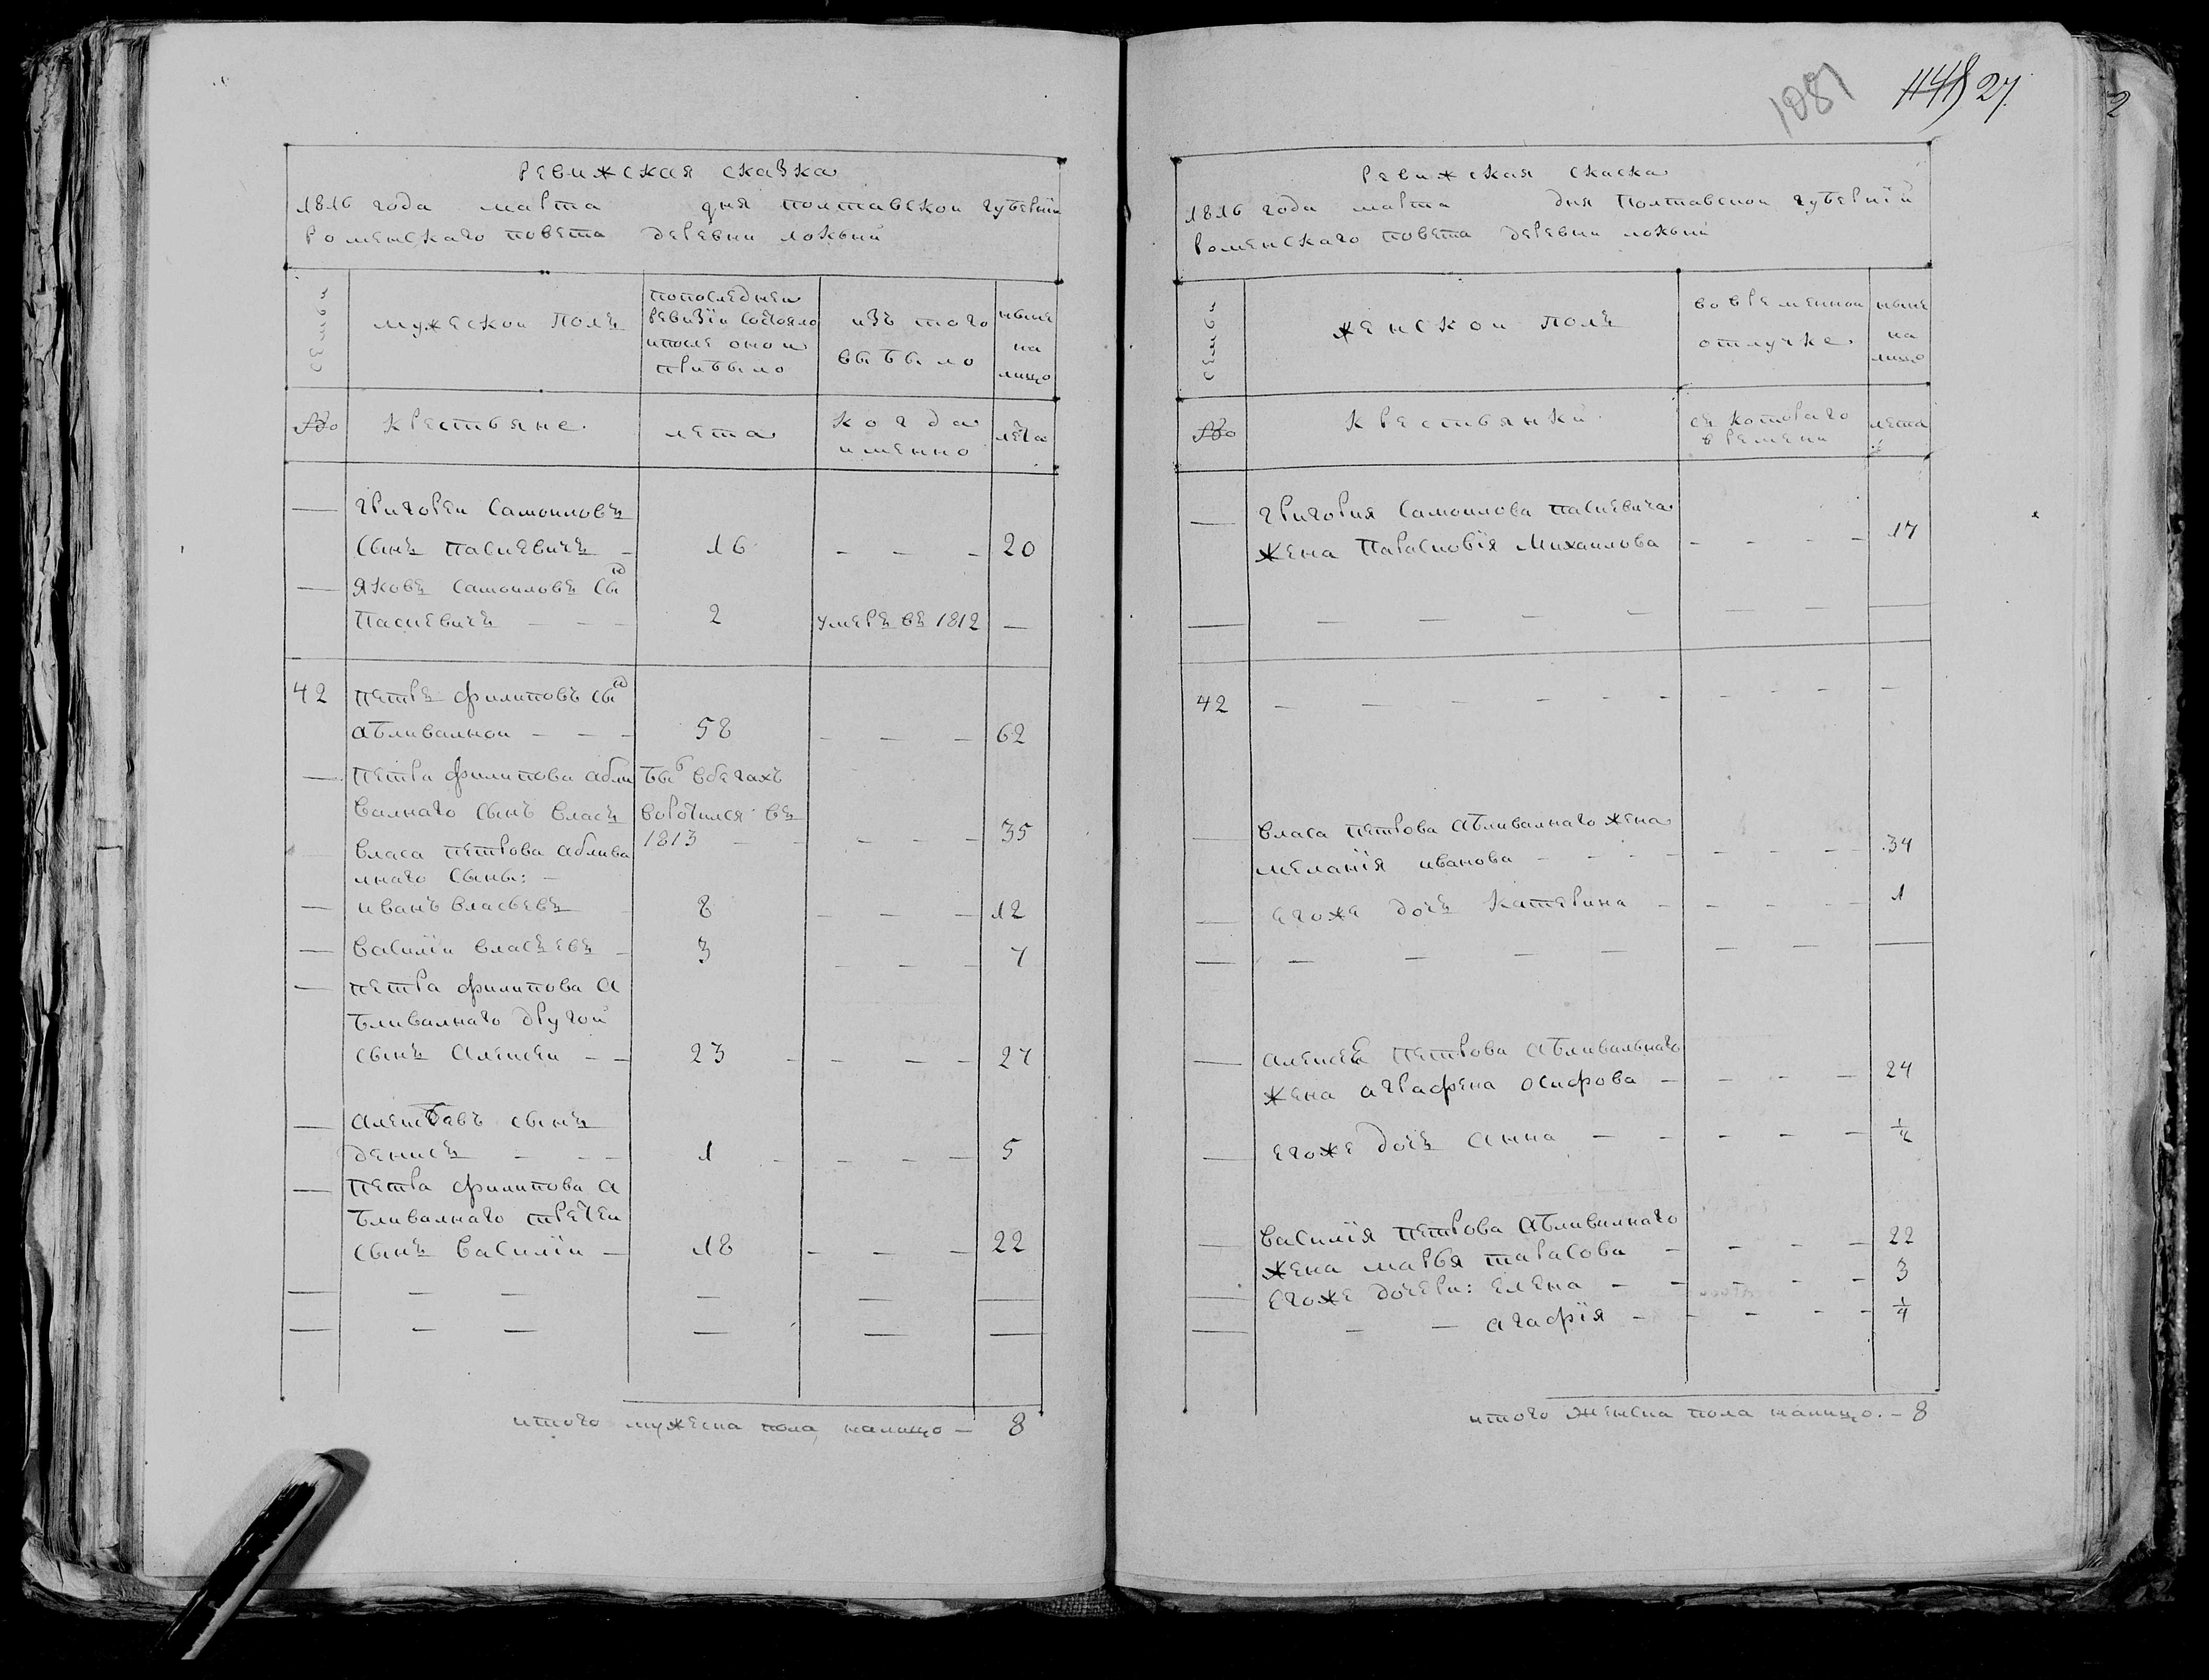 1087
1148 27
Ревижская сказка
1816 года марта дня полтавской губернїи
Роменского повета деревни локъни
семьи
мужеской полъ
попоследней
ревизїи состояло
ипосле оной
прибыло
изъ того
выбыло
ныне
на
лицо
№
крестьяне
лета
когда
именно
лета
— григорей самоиловъ
сынъ пасиевичъ — 16 — — — 20
— яковъ самоиловъ сынъ
пасиевичъ — — — 2 умеръ въ 1812 —
42 петръ филиповъ сынъ
абливалной — — — 58 — — — 62
— петра филипова абли былъ вбегахъ
валнаго сынъ власъ воротился въ
1813 — — — — — 35
власа петрова аблива
лнаго сыны: —
— иванъ власьевъ 8 — — — 12
— василїи власъевъ — 3 — — — 7
— петра филипова а
бливалнаго другой
сынъ алексеи — — 23 — — — — 27
— алексеавъ сынъ
денисъ — — — 1 — — — — 5
— петра филипова а
бливалнаго третеи
сынъ василїи — 18 — — — 22
итого мужеска пола налицо — 8
Ревижская скаска
1816 года марта дня Полтавской губернїй
Роменского повета деревни локъни
семьи
женской полъ
вовременной
отлучке
ныне
на
лицо
№
крестьянки
съ котораго
времени
лета
— григория самоилова пасиевича
жена парасковїя михаилова — — — — 17
42 — — — — — — — — —
— власа петрова абливалнаго жена
меланїя иванова — — — — — — — — 34
— егоже дочъ катерина — — — — — 1
— алексея петрова абливальнаго
жена аграфена осифова — — — — 24
— егоже дочъ анна — — — — — 1/2
— василїя петрова абливалнаго
жена марья тарасова — — — — 22
— егоже дочери: елена — — — — — 3
— — — агафїя — — — — 1/4
итого женска пола налицо. — 8